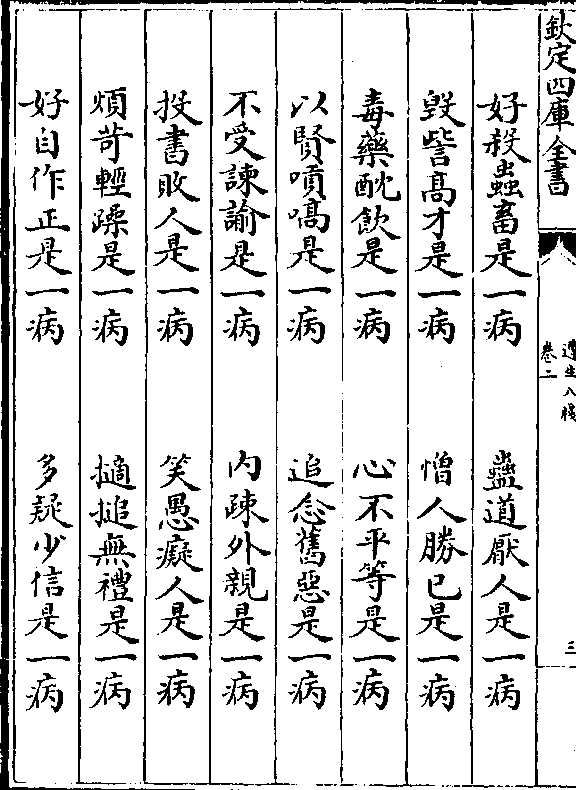 欽定四庫全書
遵生八牋
卷二
三
好殺蟲畜是一病 蠱道厭人是一病
毀訾高才是一病 憎人勝已是一病
毒藥酖飲是一病 心不平等是一病
以賢嗊嗃是一病 追念舊惡是一病
不受諫諭是一病 内疎外親是一病
投書敗人是一病 笑愚癡人是一病
煩苛輕躁是一病 擿搥無禮是一病
好自作正是一病 多疑少信是一病